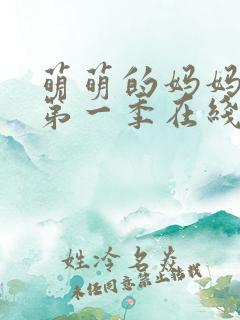 萌萌的妈妈
第一季在线
姓冷名炎
未经同意禁止转载